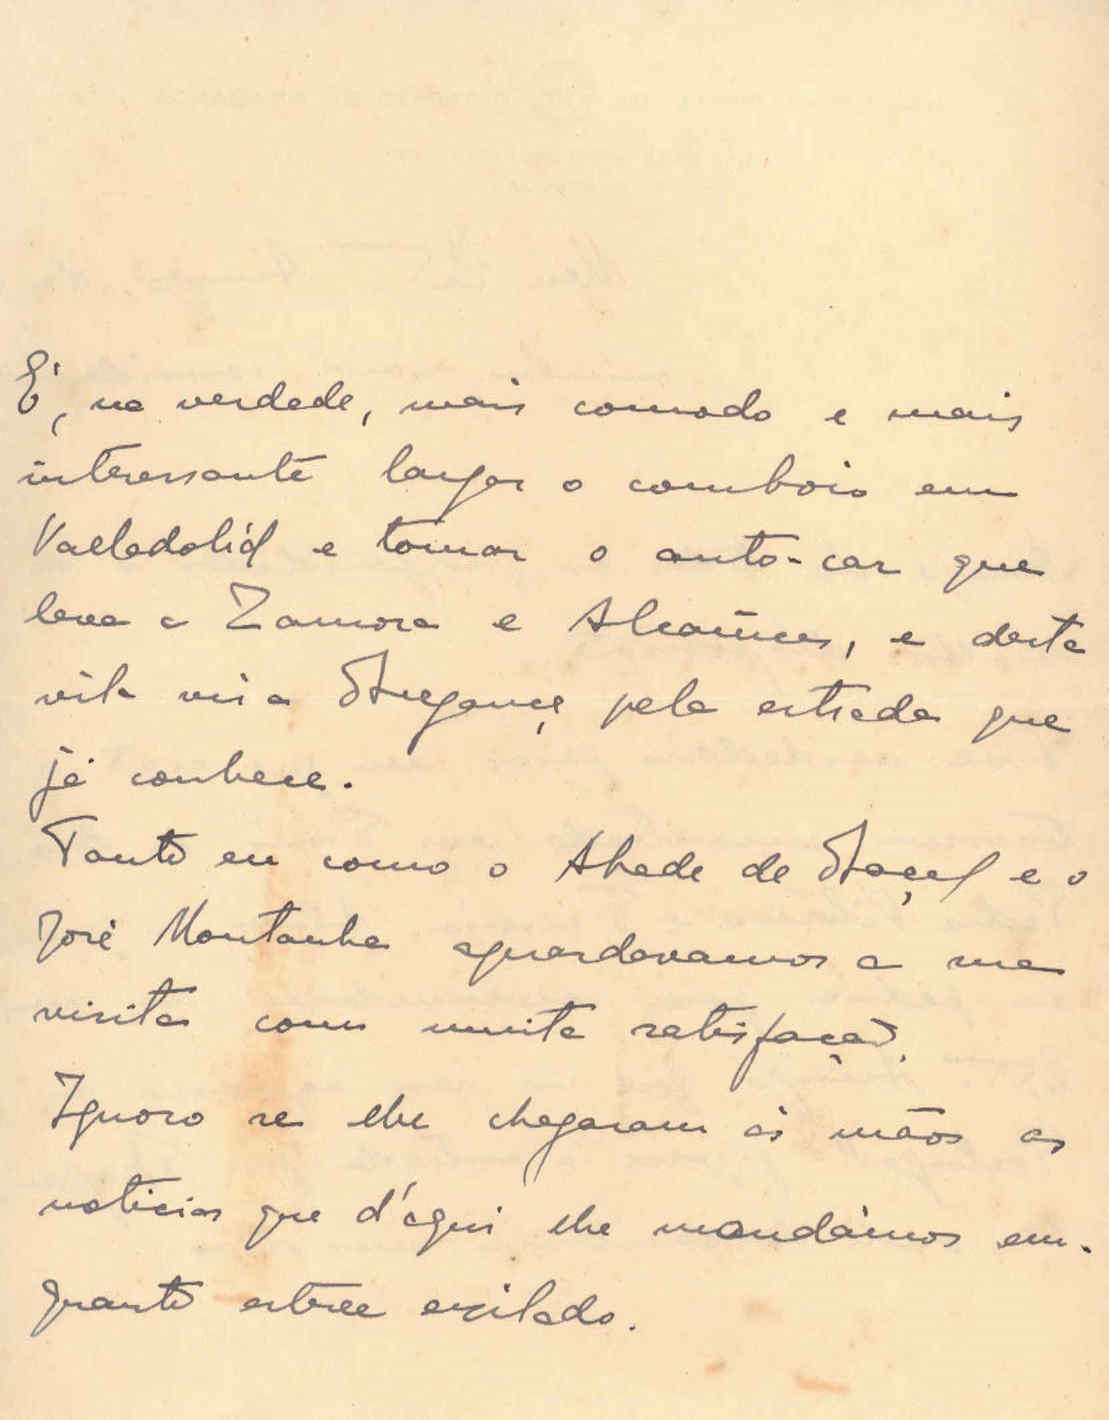 É, na verdade, mais comodo e mais
interessante largar o comboio em
Valladolid e tomar o auto-car que
leva a Zamora e Alcañices, e desta
vila vir a Bragança pela estrada que
já conhece.
Tanto eu como o Abade de Baçal e o
José Montanha aguardavamos a sua
visita com muita satisfação.
Ignoro se lhe chegaram ás mãos as
noticias que d'aqui lhe mandámos em-
quanto esteve exilado.